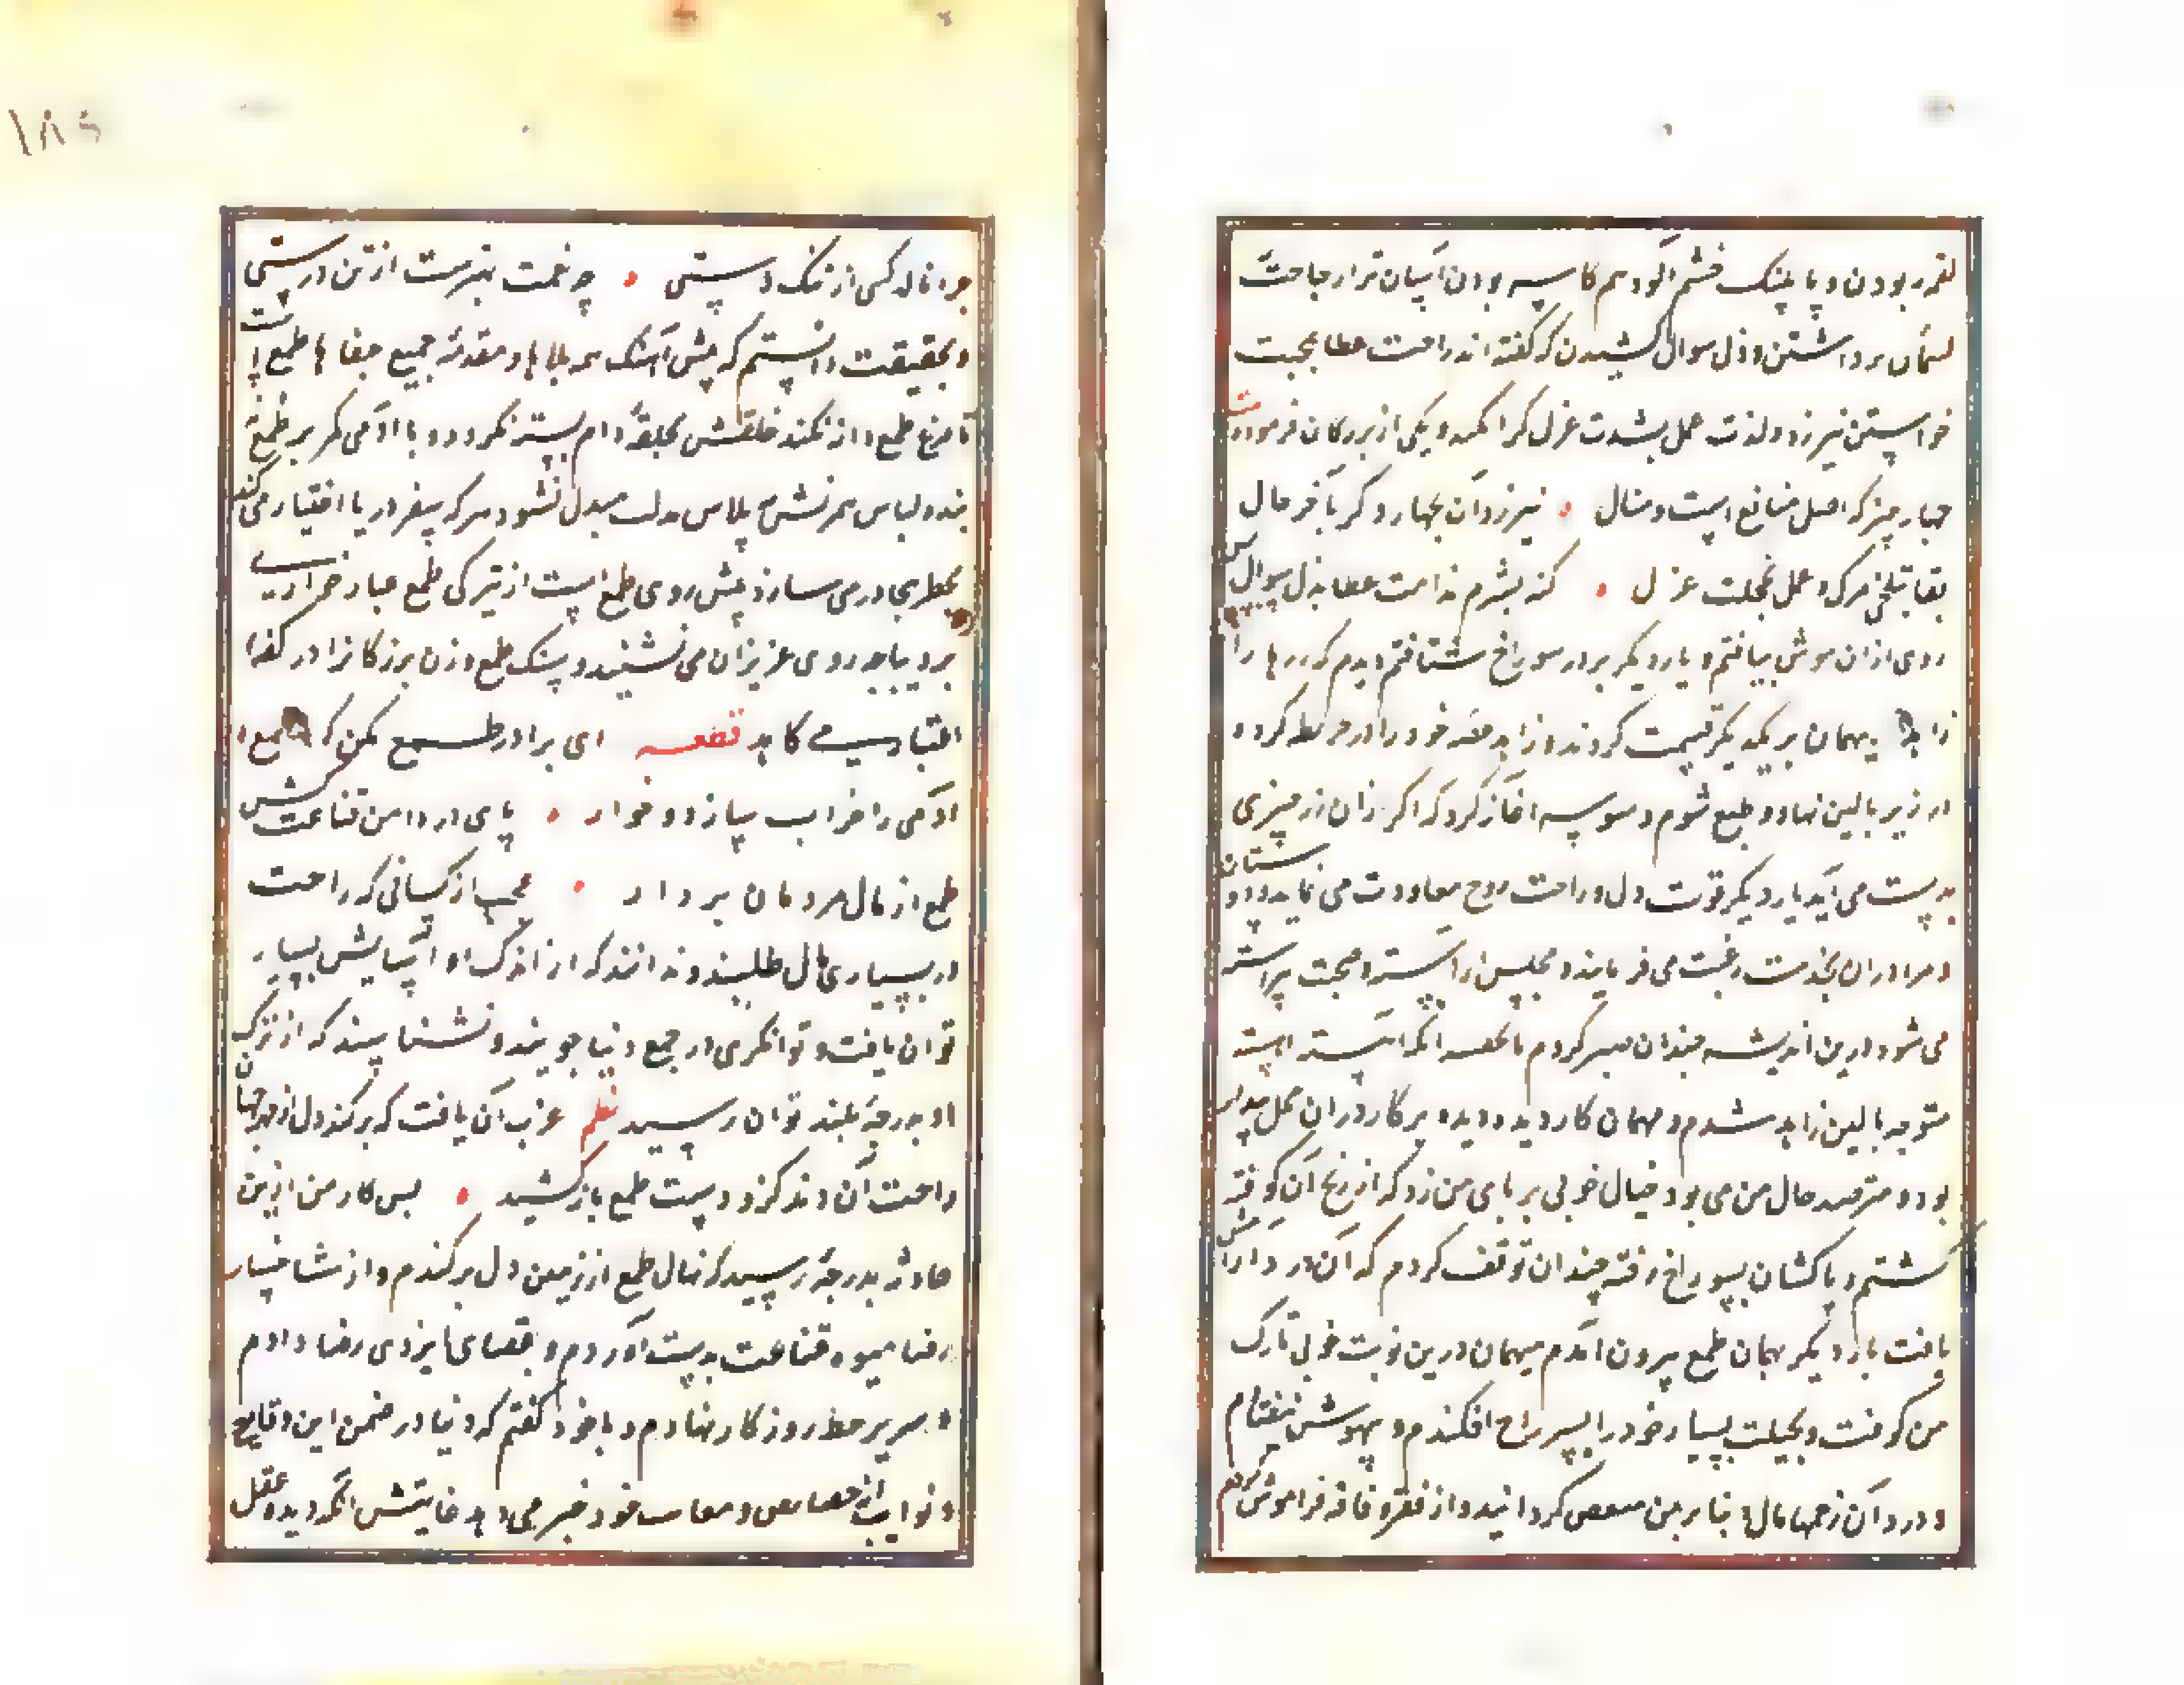 لقمه ربودن و با پلنک خشم آلود هم کاسه بودن آسان تر از حاجت
لئیمان برداشتن و ذل سوال کشیدن که گفته اند راحت عطا بمحنت
خواستن نیرزد و لذت عمل بشدت عزل کرا نکند و یکی از بزرکان فرموده است
چهار چیز که اصل منافع است و منال • نیرزد آن بچهار دکر بآخر حال
بقا بتلخی مرک و عمل بخجلت عزل • کنه بشرم ندامت عطا بذل سوال پس
روی ازان موش بیافتم و بار دیکر بر در سوراخ شتافتم دیدم که زرها را
زاهد و میهمان بر یکدیکر قسمت کردند و زاهد حصه خود را در خریطه کرده
در زیر بالین نهاد و طمع شوم وسوسه آغاز کرد که اکر ازان زر چیزی
بدست می آید بار دیکر قوت دل و راحت روح معاودت می نماید و دوستان
و برادران بخدمت رغبت می فرمایند و مجلس آراسته و صحبت پیراسته
می شود درین اندیشه چندان صبر کردم
متوجه بالین زاهد شدم و مهمان کار دیده بر کار دران محل بیدار
بود و مترصد حال من می بود خیال چوبی بر پای من زد که از رنج آن کوفته
کشتم و پا کشان بسوراخ رفته چندان توقف کردم که آن درد آرامش
یافت بار دیکر بهمان طمع بیرون آمدم میهمان درین نوبت چوبی تارک
من کرفت و بحیلت بسیار خود را بسوراخ افکندم و بیهوش بیفتادم
و درد آن زخمها مال دنیا بر من منغص کردانید و از فقر و فاقه فراموش کردم
چرا نالد کسی از تنک دستی • چو نعمت بهترست از تن درستی
و بحقیقت دانستم که پیش آهنک همه بلاها و مقدمه جمیع جفاها طمع است
تا مرغ طمع دانه نکند حلقش بحلقه دام بسته نکردد و تا آدمی کمر بر طمع
بندد لباس هم نشین پلاس مذلت مبدل نشود هر که سفر دریا اختیار می کند
بخطر جان در می سازد پیش روی طمع است از تیرکی طمع غبار خواری
بر دیباجه روی عزیزان می نشیند و سنک طمع وزن بزرکانرا در کفه
اعتبار سبک می کاهد قطعه ای برادر طمع مکن که طمع
آدمی را خراب سازد و خوار • پای در دامن قناعت کش
طمع از مال مردمان بردار • عجب از کسانی که راحت
در بسیاری مال طلبند و ندانند که از اندک او آسایش بسیار
توان یافت و توانکری در جمع دنیا جویند و نشناسند که از ترک
او بدرجه بلند توان رسید نظم عزت آن یافت که بر کند دل از مهر جهان
راحت آن دید کزو دست طمع باز کشید • پس کار من ازین
حادثه بدرجه رسید که نهال طمع از زمین دل برکندم و از شاخسار
رضا میوه قناعت بدست آوردم و بقضای ایزدی رضا دادم
و سر بر خط روزکار نهادم و با خود کفتم که دنیا در ضمن این وقایع
و نوایب از خصایص و معایب خود خبر می دهد غایتش آنکه دیده عقل
۱۸۶